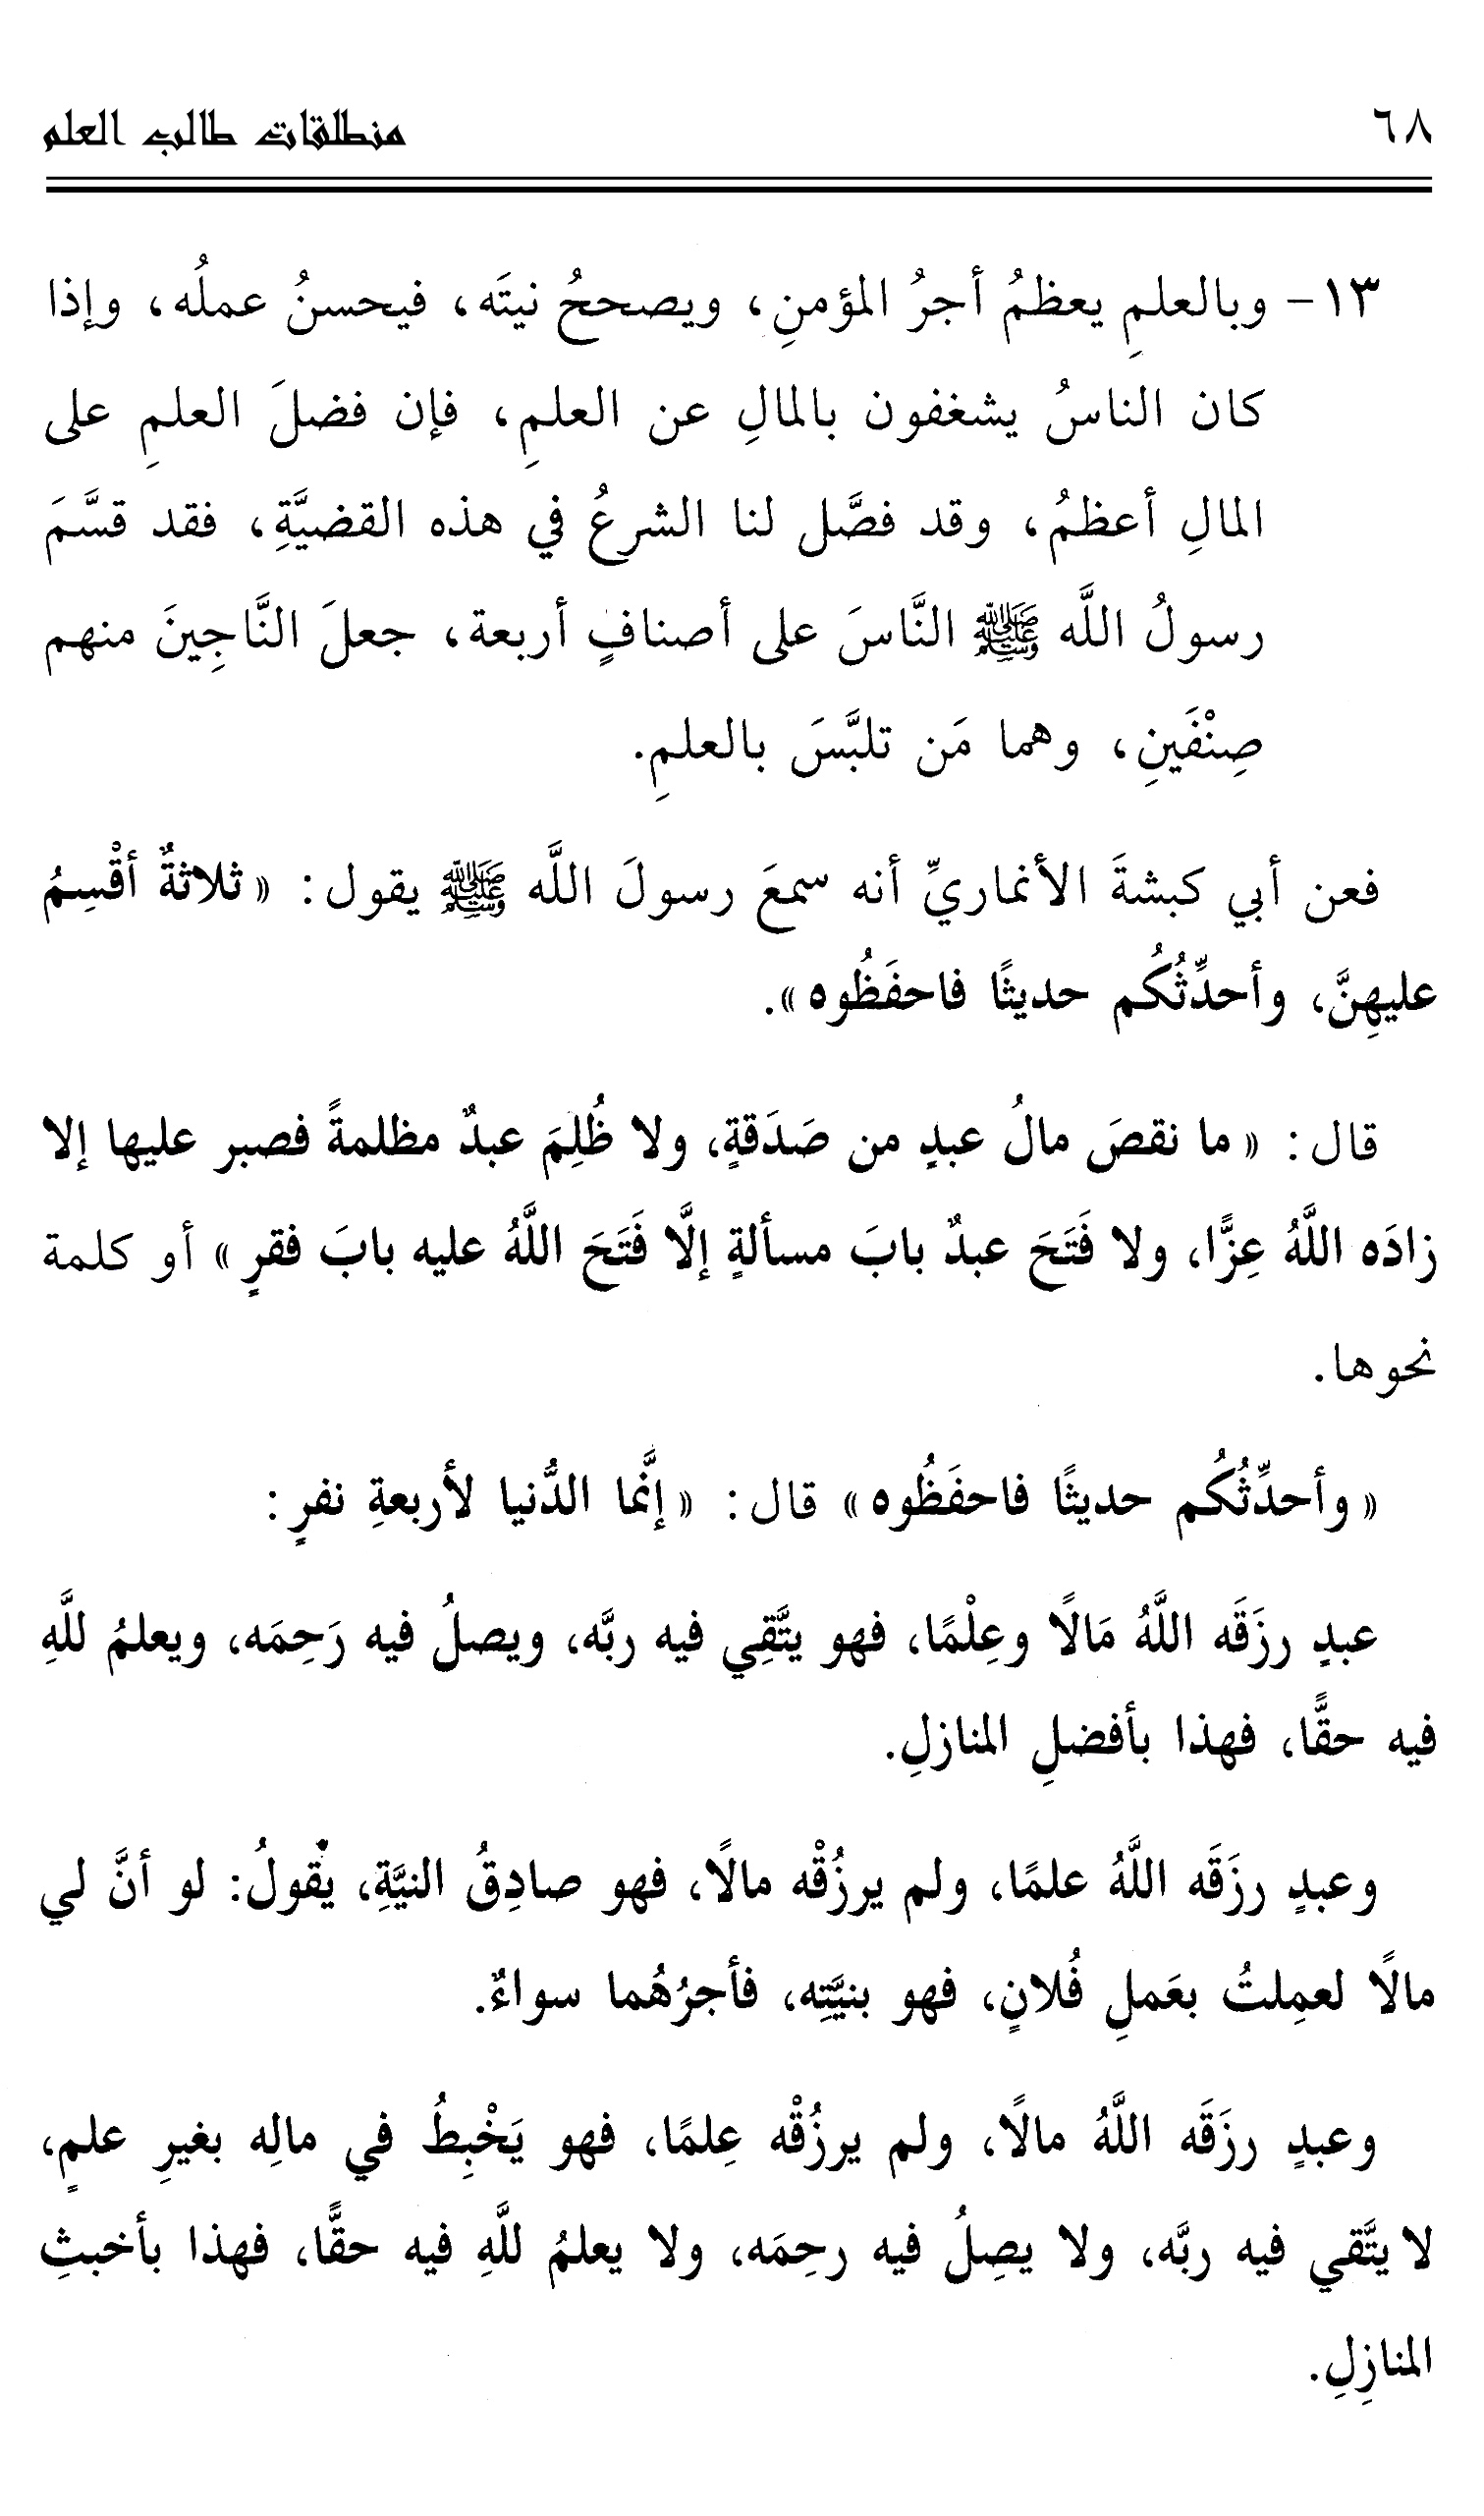 ٦٨
منطلقات طالب العلم
١٣- وبالعلمِ يعظمُ أجرُ المؤمنِ، ويصححُ نيتَه، فيحسنُ عملُه، وإذا
كان الناسُ يشغفون بالمالِ عن العلمِ، فإن فضلَ العلمِ على
المالِ أعظمُ، وقد فصَّل لنا الشرعُ في هذه القضيَّةِ، فقد قسَّمَ
رسولُ اللَّه ﷺ النَّاسَ على أصنافٍ أربعة، جعلَ النَّاجِينَ منهم
صِنْفَينِ، وهما مَن تلبَّسَ بالعلمِ.
فعن أبي كبشةَ الأنماريِّ أنه سمعَ رسولَ اللَّه ﷺ يقول: «ثلاثةٌ أقْسِمُ
عليهِنَّ، وأحدِّثُكُم حديثًا فاحفَظُوه».
قال: «ما نقصَ مالُ عبدٍ من صَدَقةٍ، ولا ظُلِمَ عبدٌ مظلمةً فصبر عليها إلا
زادَه اللَّهُ عِزًّا، ولا فَتَحَ عبدٌ بابَ مسألةٍ إلَّا فَتَحَ اللَّهُ عليه بابَ فقرٍ» أو كلمة
نحوها.
«وأحدِّثُكُم حديثًا فاحفَظُوه» قال: «إنَّما الدُّنيا لأربعةِ نفرٍ:
عبدٍ رزَقَه اللَّهُ مَالًا وعِلْمًا، فهو يتَّقِي فيه ربَّه، ويصلُ فيه رَحِمَه، ويعلمُ للَّهِ
فيه حقًّا، فهذا بأفضلِ المنازلِ.
وعبدٍ رزَقَه اللَّهُ علمًا، ولم يرزُقْه مالًا، فهو صادِقُ النيَّةِ، يقولُ: لو أنَّ لي
مالًا لعمِلتُ بعَملِ فُلانٍ، فهو بنيَّتِه، فأجرُهُما سواءٌ.
وعبدٍ رزَقَه اللَّهُ مالًا، ولم يرزُقْه عِلمًا، فهو يَخْبِطُ في مالِه بغيرِ علمٍ،
لا يتَّقي فيه ربَّه، ولا يصِلُ فيه رحِمَه، ولا يعلمُ للَّهِ فيه حقًّا، فهذا بأخبثِ
المنازِلِ.